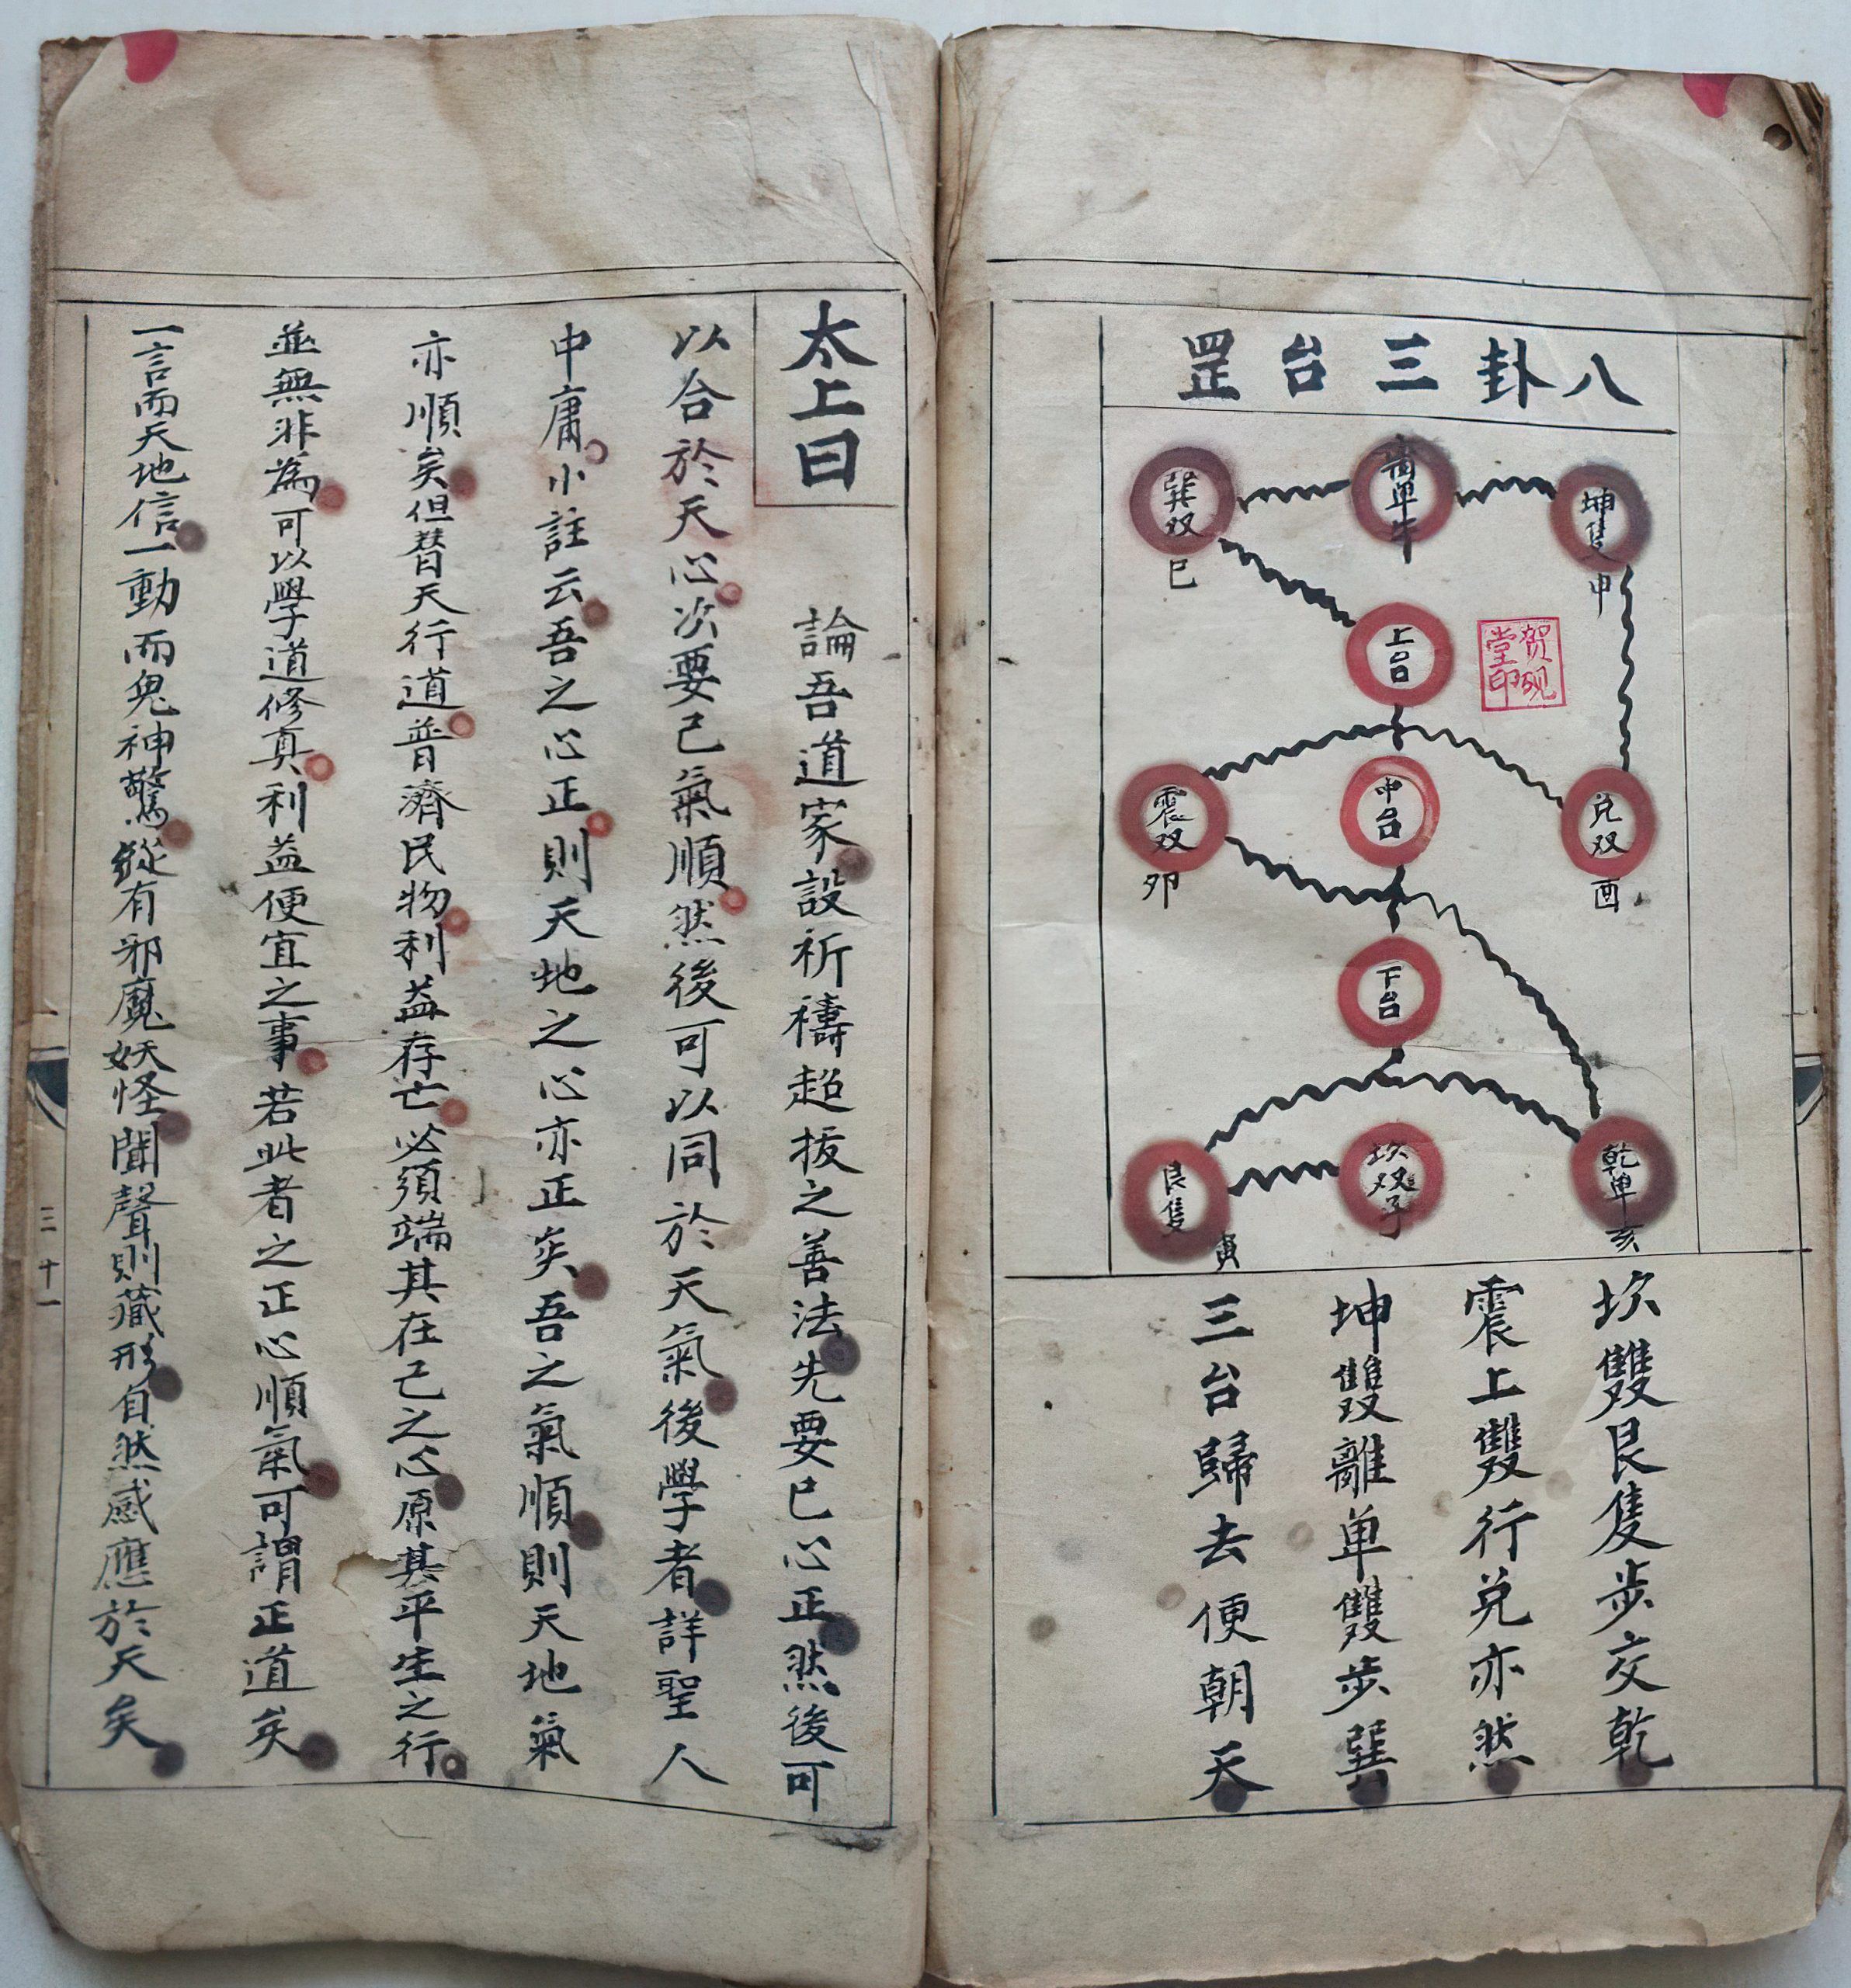 八卦三台罡
坤隻
申
單
巽双
巳
上台
贺砚堂印
兑双
酉
中台
震双
卯
下台
乾单
亥
坎双子
艮隻
寅
坎雙艮隻步交乾
震上雙行兑亦然
坤雙離单雙步巽
三台歸去便朝天
太上曰
論吾道家設祈禱超拔之善法先要已心正然後可
以合於天心次要己氣順然後可以同於天氣後學者詳聖人
中庸小註云吾之心正則天地之心亦正矣吾之氣順則天地氣
亦順矣但替天行道普濟民物利益存亡必須端其在己之心原其平生之行
並無非為可以學道修真利益便宜之事若此者之正心順氣可謂正道矣
一言而天地信一動而鬼神驚縱有邪魔妖怪聞聲則藏形自然感應於天矣
三十一